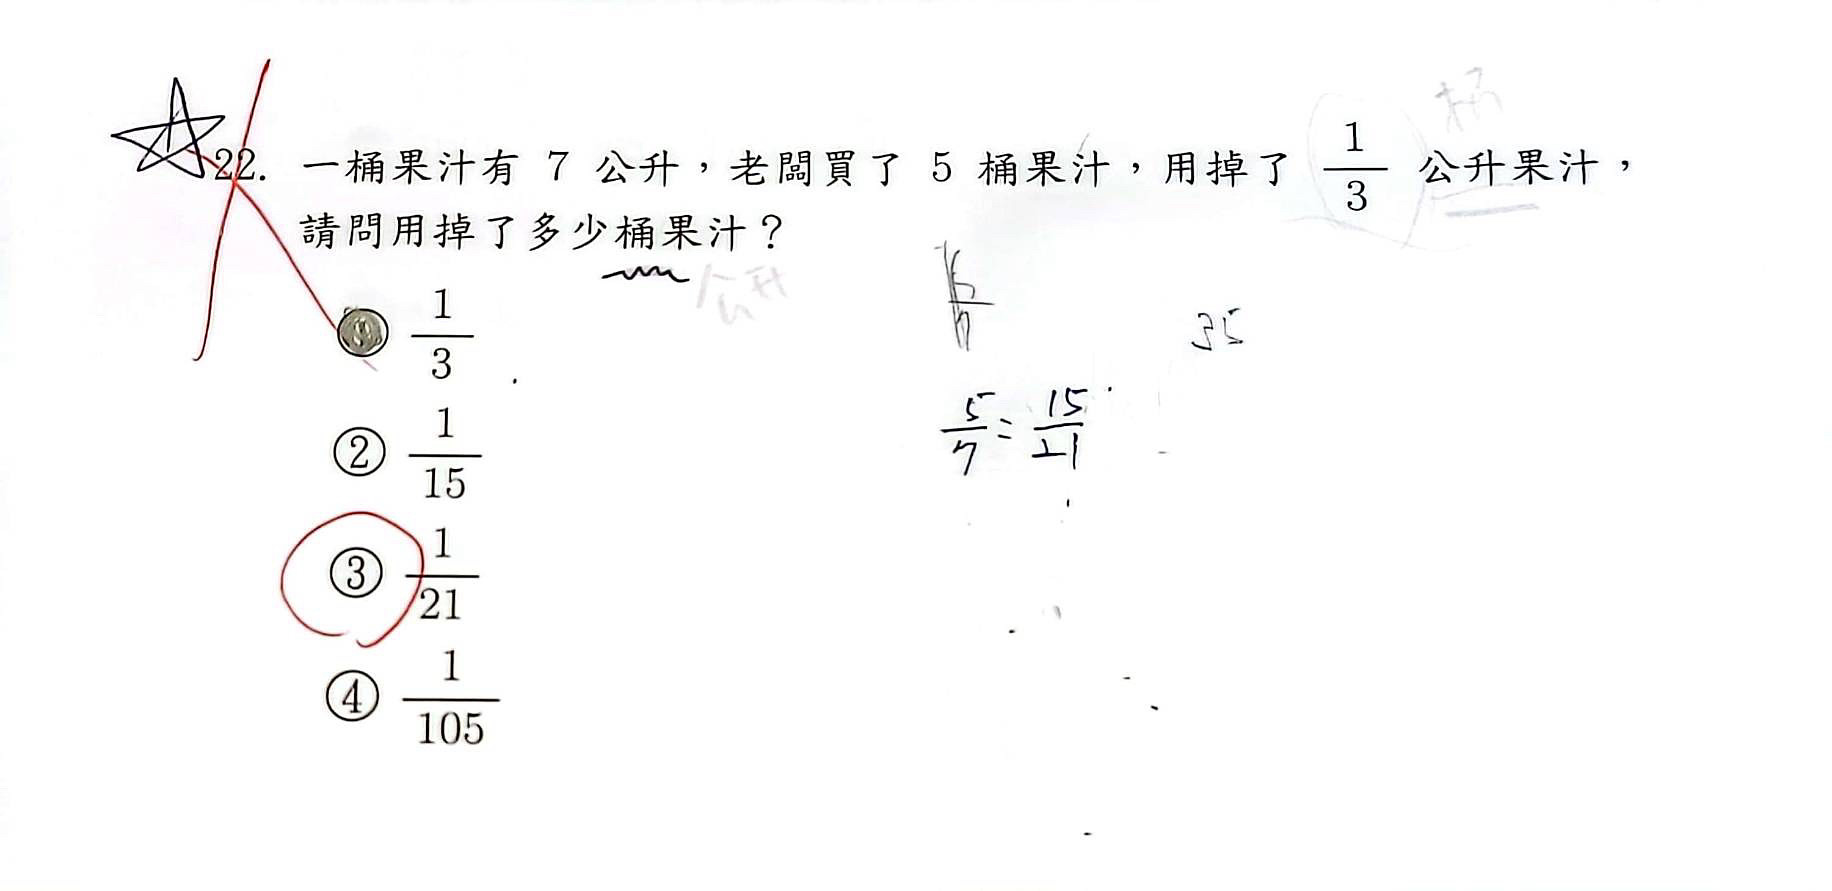 22. 一桶果汁有 7 公升，老闆買了 5 桶果汁，用掉了 1/3 公升果汁，
請問用掉了多少桶果汁？
公升
桶
35
5/7 = 15/21
① 1/3
② 1/15
③ 1/21
④ 1/105